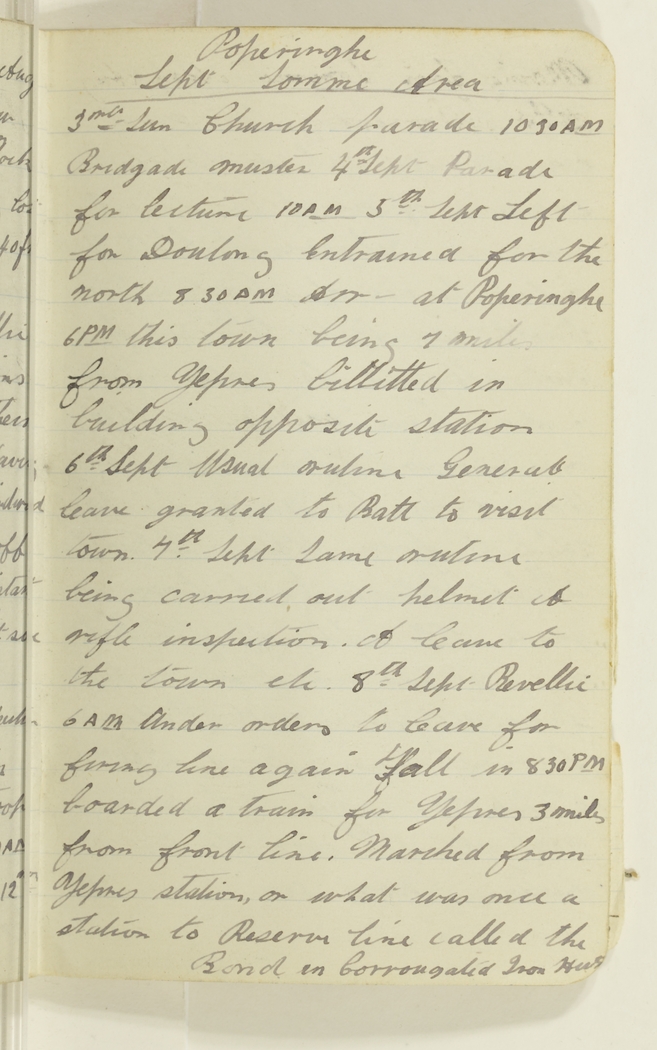 Poperinghe
Sept Somme Area
3rd Sun Church parade 10 30 AM
Bridgade muster 4th Sept Parade
for lecture 10 AM 5th Sept Left
for Doulong Entrained for the
north 8 30 AM Arr - at Poperinghe
6 PM this town being 7 miles
from Yepres billitted in
building opposite station
6th Sept Usual routine General
leave granted to Batt to visit
town. 7th Sept Same routine
being carried out helmet &
rifle inspection. & leave to
the town etc. 8th Sept Revellie
6 AM Under orders to leave for
firing line again Fall in 8 30 PM
boarded a train for Yepres 3 miles
from front line. Marched from
Yepres station, or what was once a
station to Reserve line called the
Bond in Corrougated Iron Huts